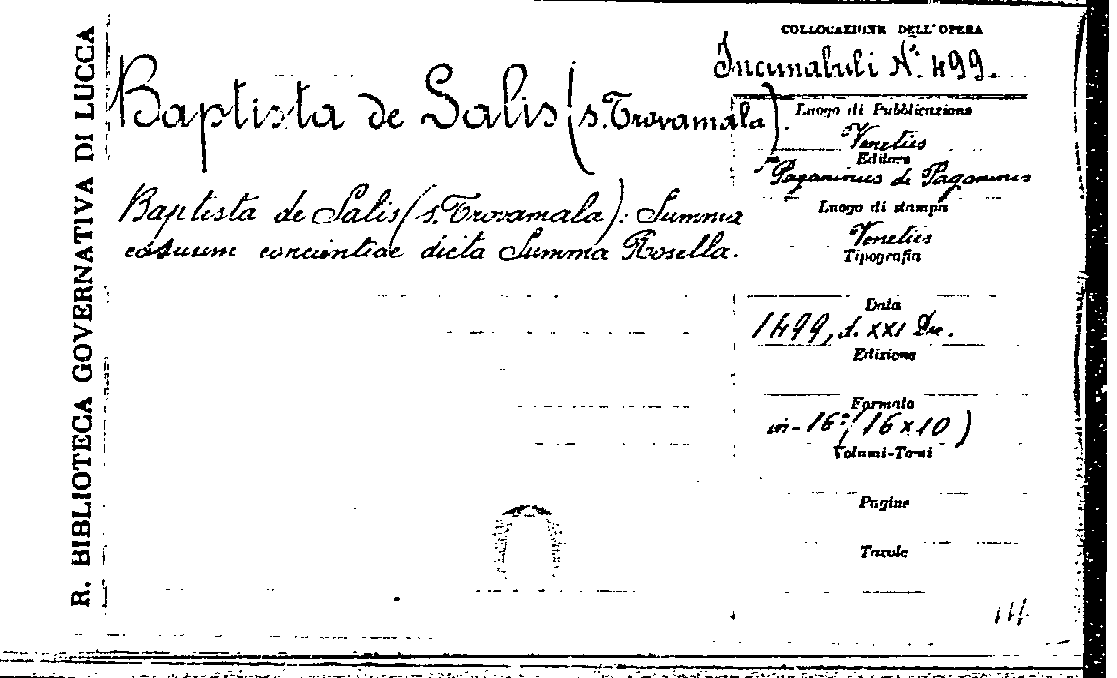 R. BIBLIOTECA GOVERNATIVA DI LUCCA
COLLOCAZIONE DELL'OPERA
Incunabuli N.º 499.
Baptista de Salis (s. Trovamala).
Baptista de Salis (s. Trovamala): Summa
casuum concientiae dicta Summa Rosella.
Luogo di Pubblicazione
Venetiis
Editore
Paganinus de Paganinis
Luogo di stampa
Venetiis
Tipografia
Data
1499, d. XXI Dec.
Edizione
Formato
in-16º (16x10)
Volumi-Tomi
Pagine
Tavole